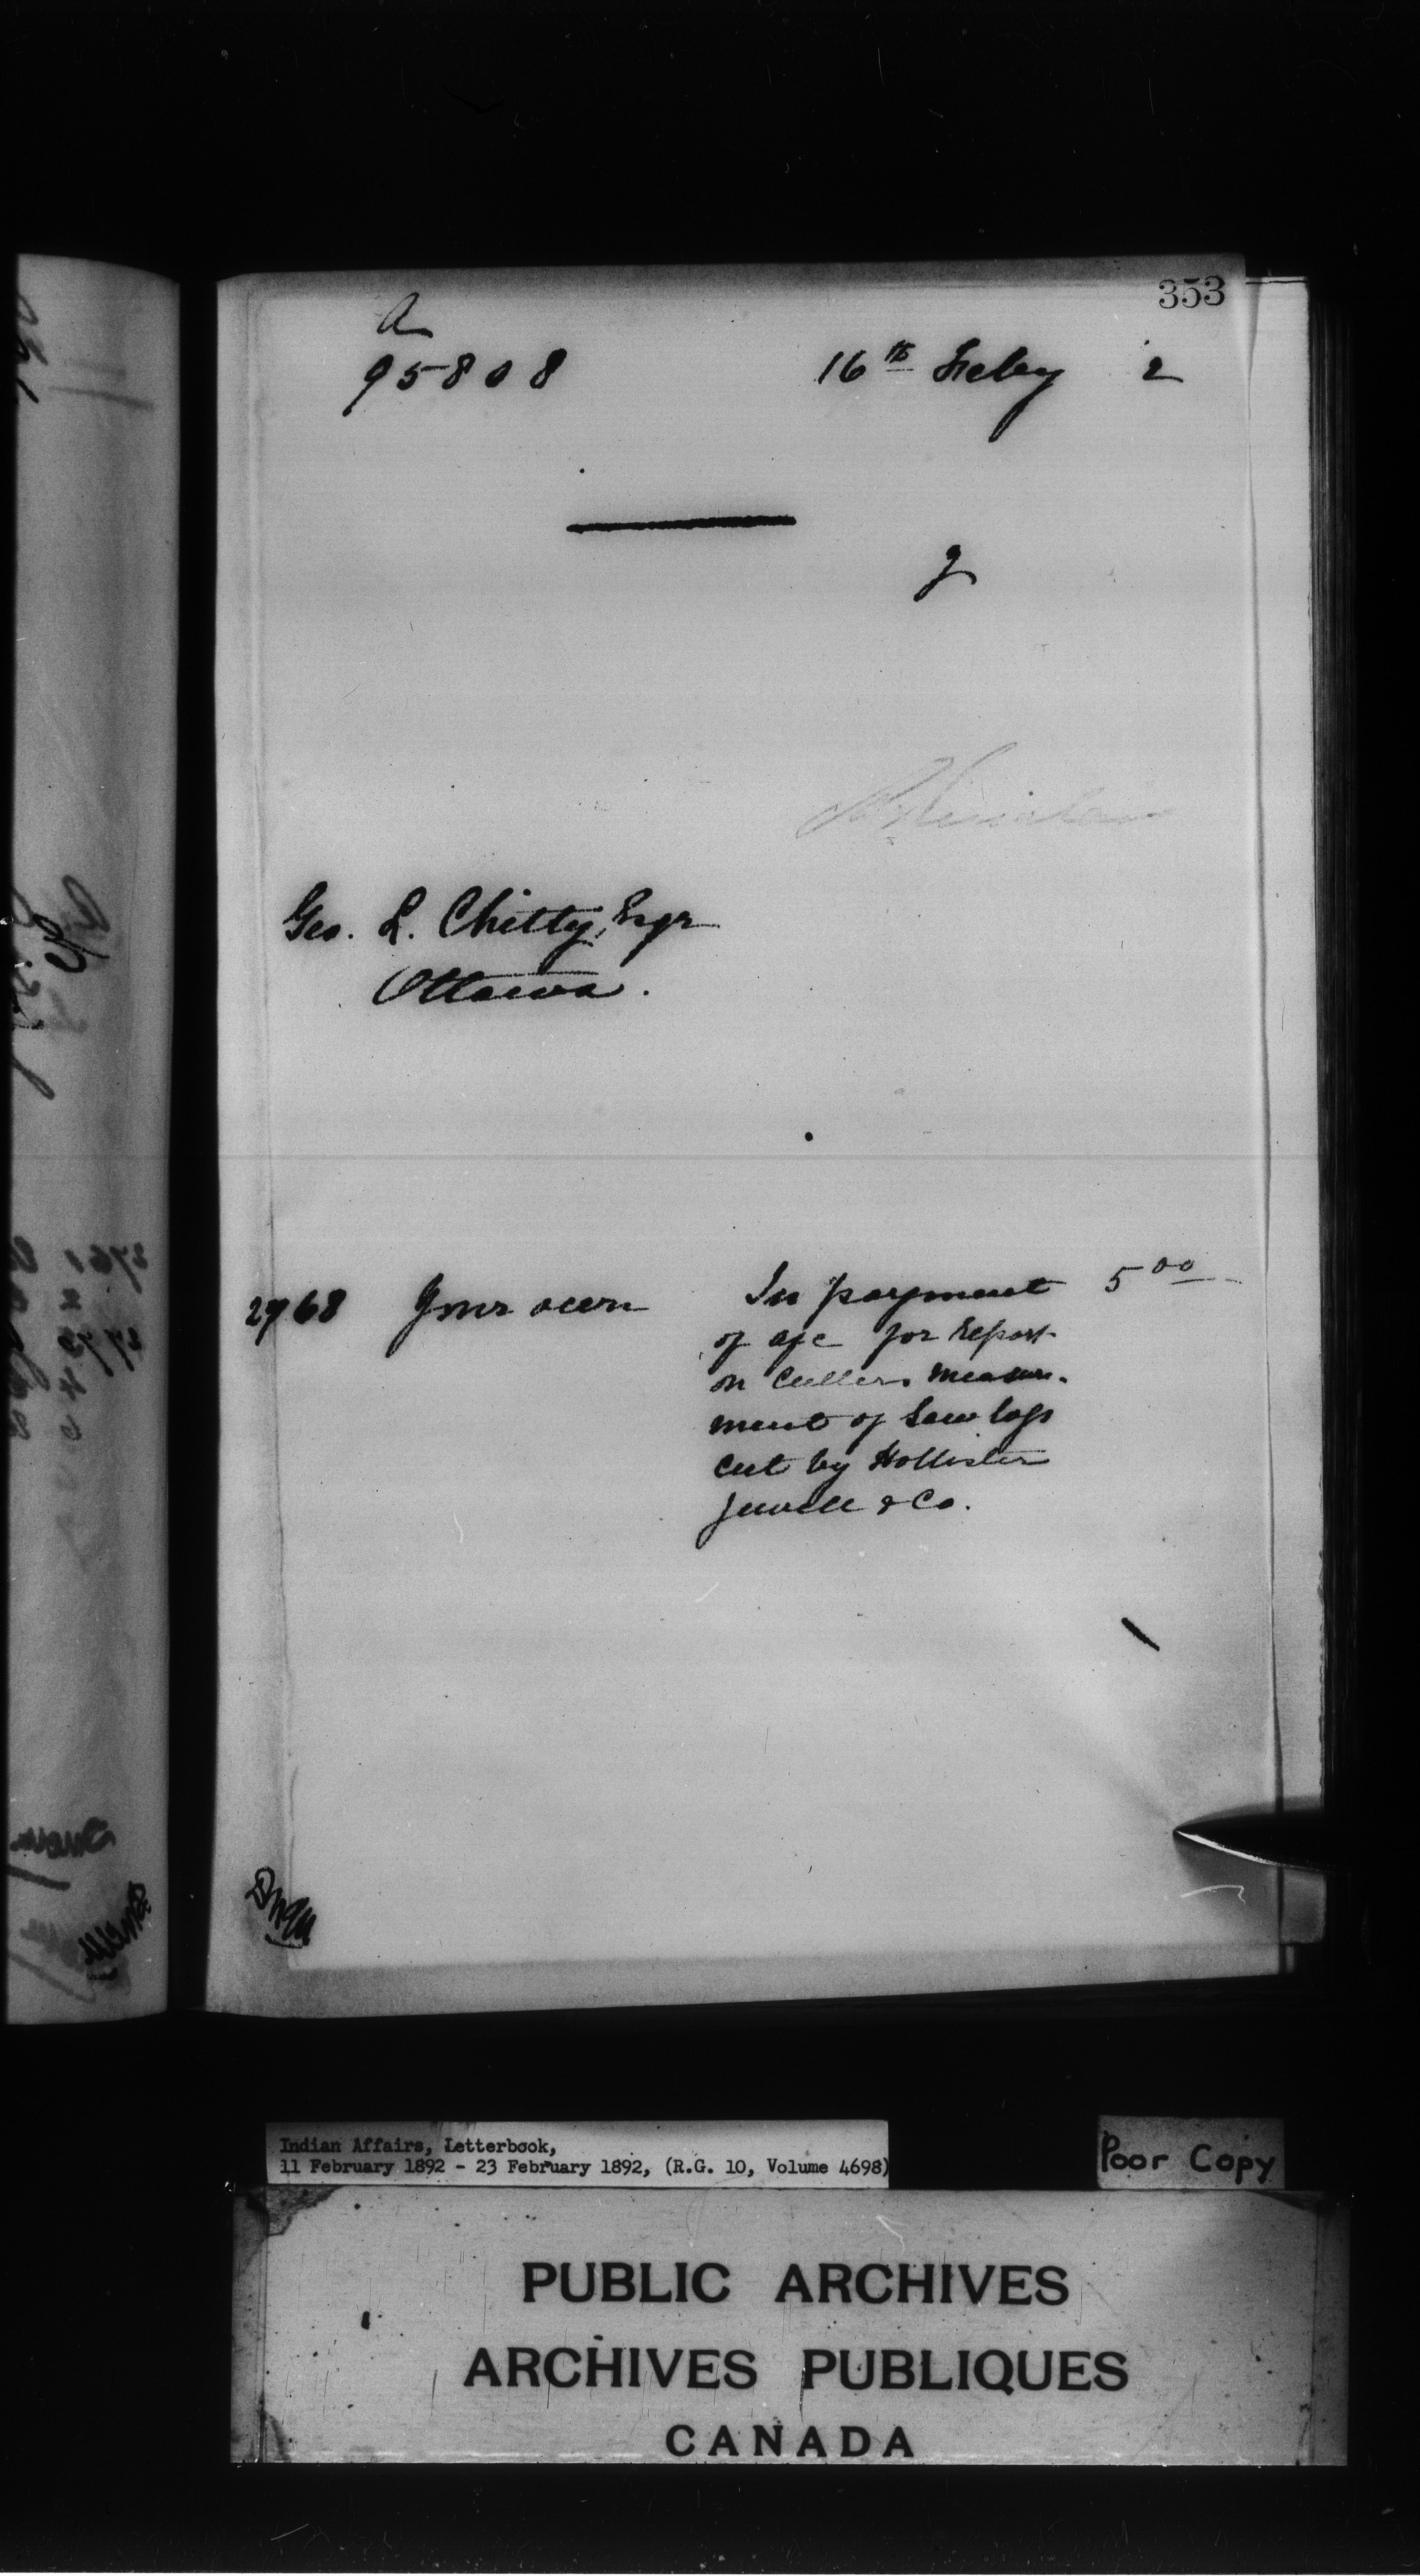 353
a
95808 16th Feby 2
Geo. L. Chitty, Esqr
Ottawa.
2768 Your own In payment 5 00
of a/c for report
on Cullers measure-
ment of Saw logs
cut by Hollister
Jewell & Co.
Indian Affairs, Letterbook,
11 February 1892 - 23 February 1892, (R.G. 10, Volume 4698)
Poor Copy
PUBLIC ARCHIVES
ARCHIVES PUBLIQUES
CANADA